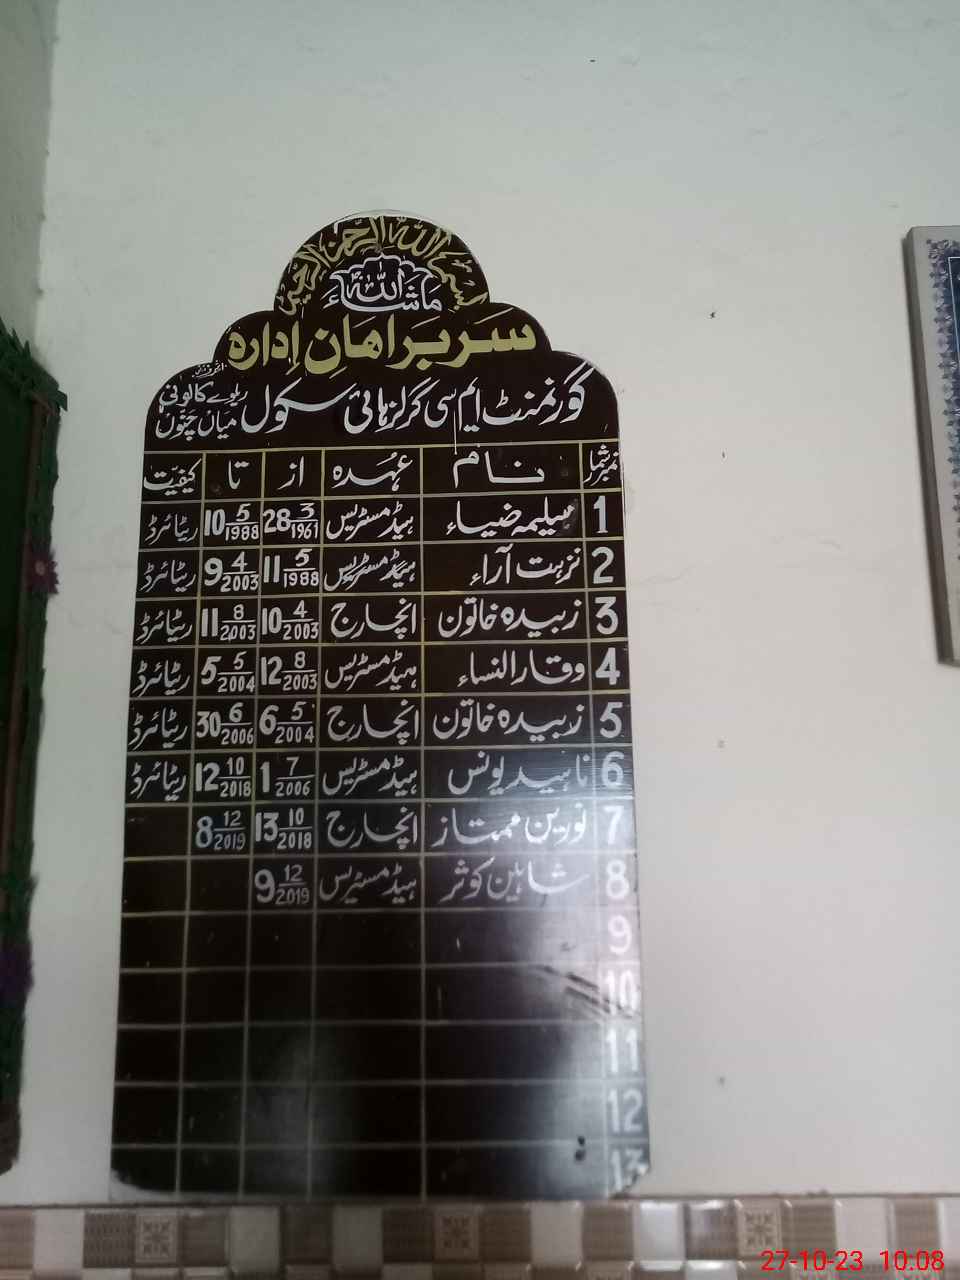 بسم الله الرحمن الرحيم
ماشاءاللہ
سربراهانِ اِداره
گورنمنٹ ایم سی گرلز ہائی سکول ریلوے کالونی میاں چنوں
نمبر شمار نام عہدہ از تا کیفیت
1 سلیمہ ضیاء ہیڈمسٹریس 28 3/1961 10 5/1988 ریٹائرڈ
2 نزہت آراء ہیڈمسٹریس 11 5/1988 9 4/2003 ریٹائرڈ
3 زبیدہ خاتون انچارج 10 4/2003 11 8/2003 ریٹائرڈ
4 وقارالنساء ہیڈمسٹریس 12 8/2003 5 5/2004 ریٹائرڈ
5 زبیدہ خاتون انچارج 6 5/2004 30 6/2006 ریٹائرڈ
6 ناہید یونس ہیڈمسٹریس 1 7/2006 12 10/2018 ریٹائرڈ
7 نورین ممتاز انچارج 13 10/2018 8 12/2019
8 شاہین کوثر ہیڈمسٹریس 9 12/2019
9
10
11
12
13
27-10-23 10:08